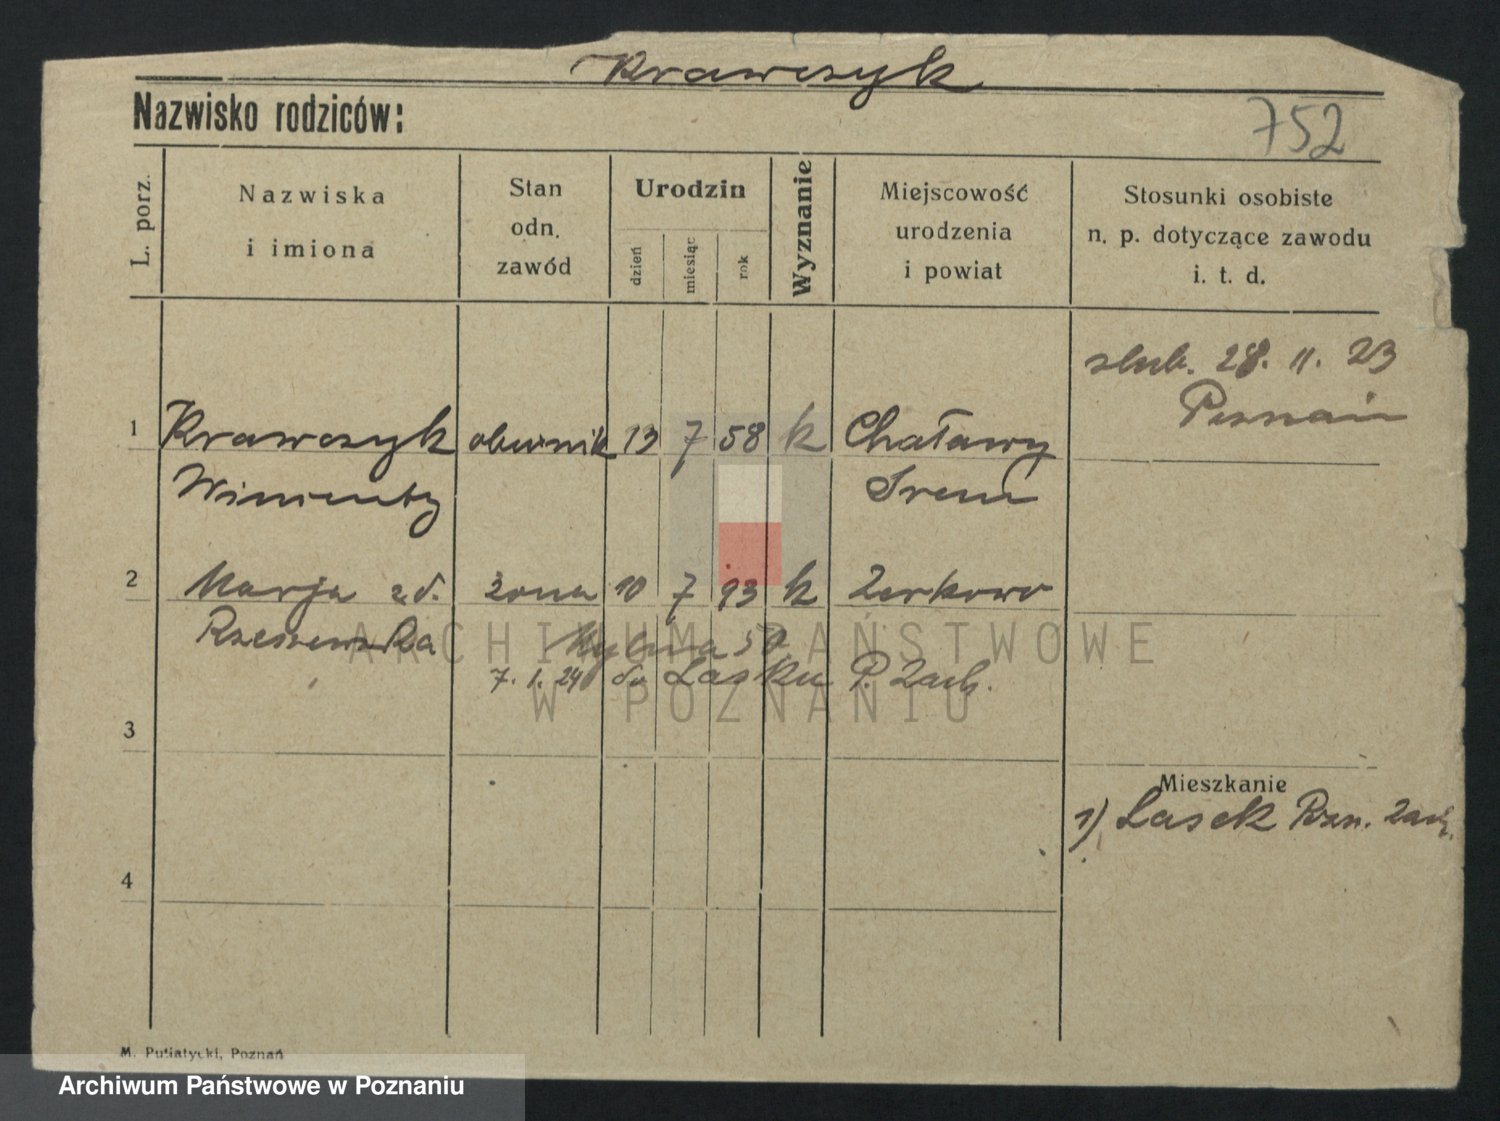 Krawczyk
Nazwisko rodziców:
752
L. porz.
Nazwiska
i imiona
Stan
odn.
zawód
Urodzin
dzień
miesiąc
rok
Wyznanie
Miejscowość
urodzenia
i powiat
Stosunki osobiste
n. p. dotyczące zawodu
i. t. d.
slub. 28. 11. 23
Poznań
1 Krawczyk obuwnik 13 7 58 k Chaławy
Wincenty Srem
2 Marja zd. żona 10 7 93 k Zerkowo
Rzeszewska Mylna 50
7. 1. 24 do Lasku P. Zach.
3
Mieszkanie
1) Lasek Pozn. Zach.
4
M. Putiatycki, Poznań
ARCHIWUM PAŃSTWOWE
W POZNANIU
Archiwum Państwowe w Poznaniu